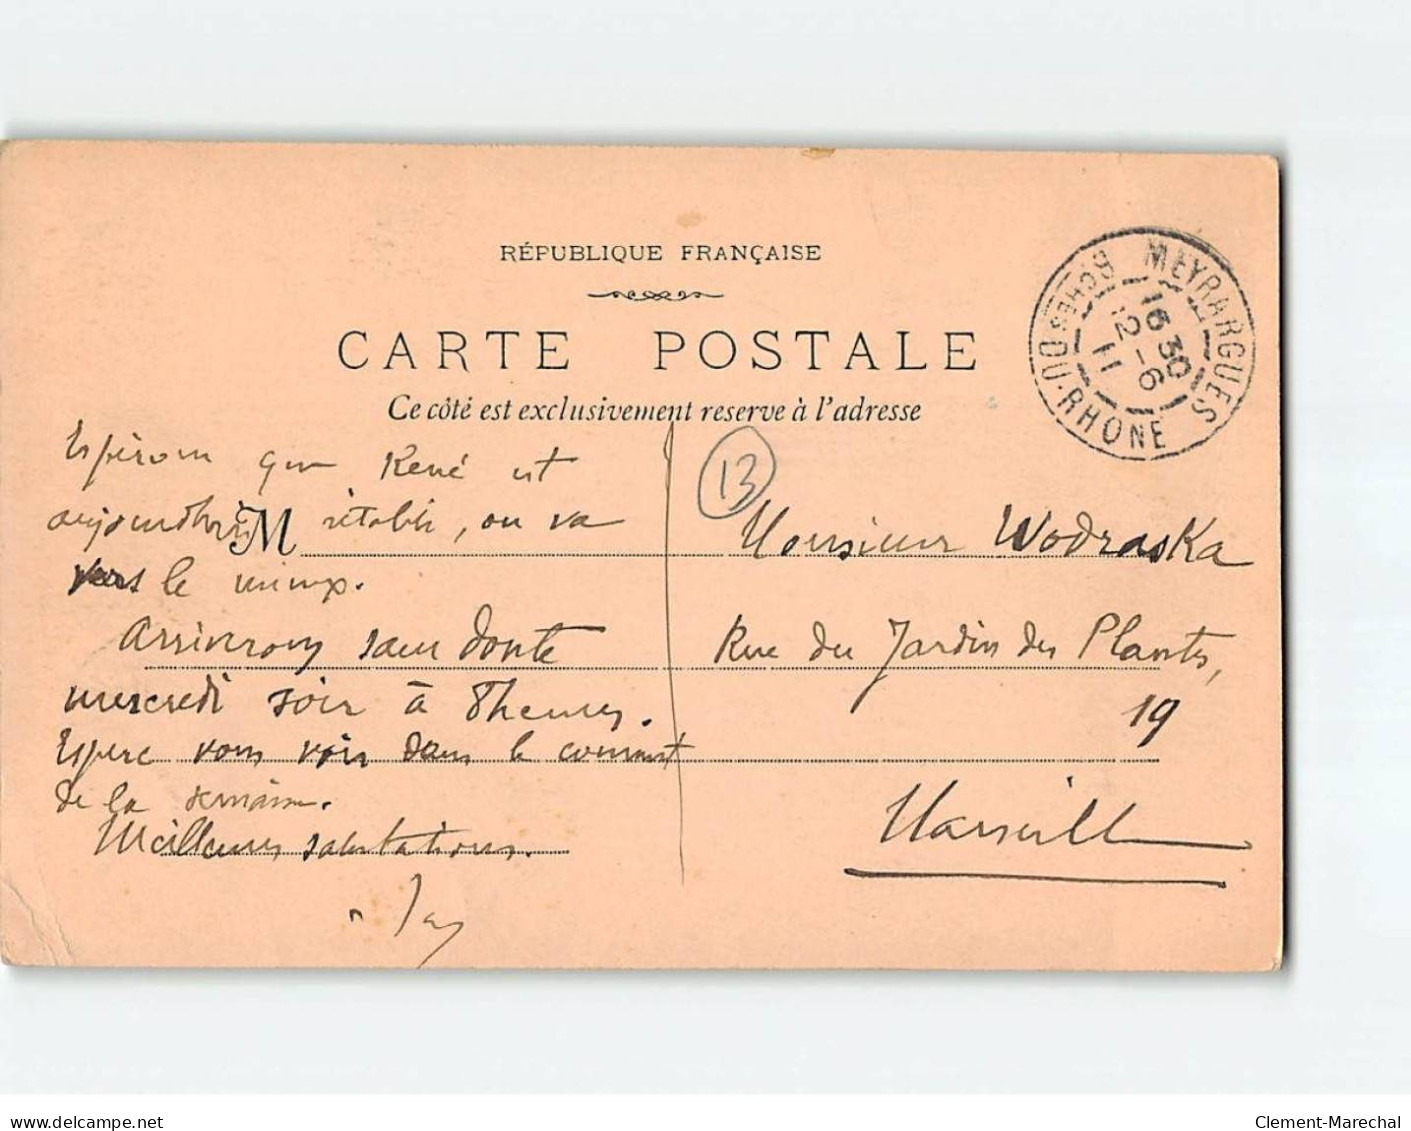 RÉPUBLIQUE FRANÇAISE
CARTE POSTALE
Ce côté est exclusivement reserve à l'adresse
MEYRARGUES
BCHES-DU-RHONE
16 30
12 - 6
11
13
Espérons que René est
aujourd'hui rétabli, ou va
vers le mieux.
Arriverons sans doute
mercredi soir à 8 heures.
Espere vous voir dans le courant
de la semaine.
Meilleures salutations.
M
Monsieur Wodraska
Rue du Jardin des Plantes,
19
Marseille
delcampe.net
Clement-Marechal